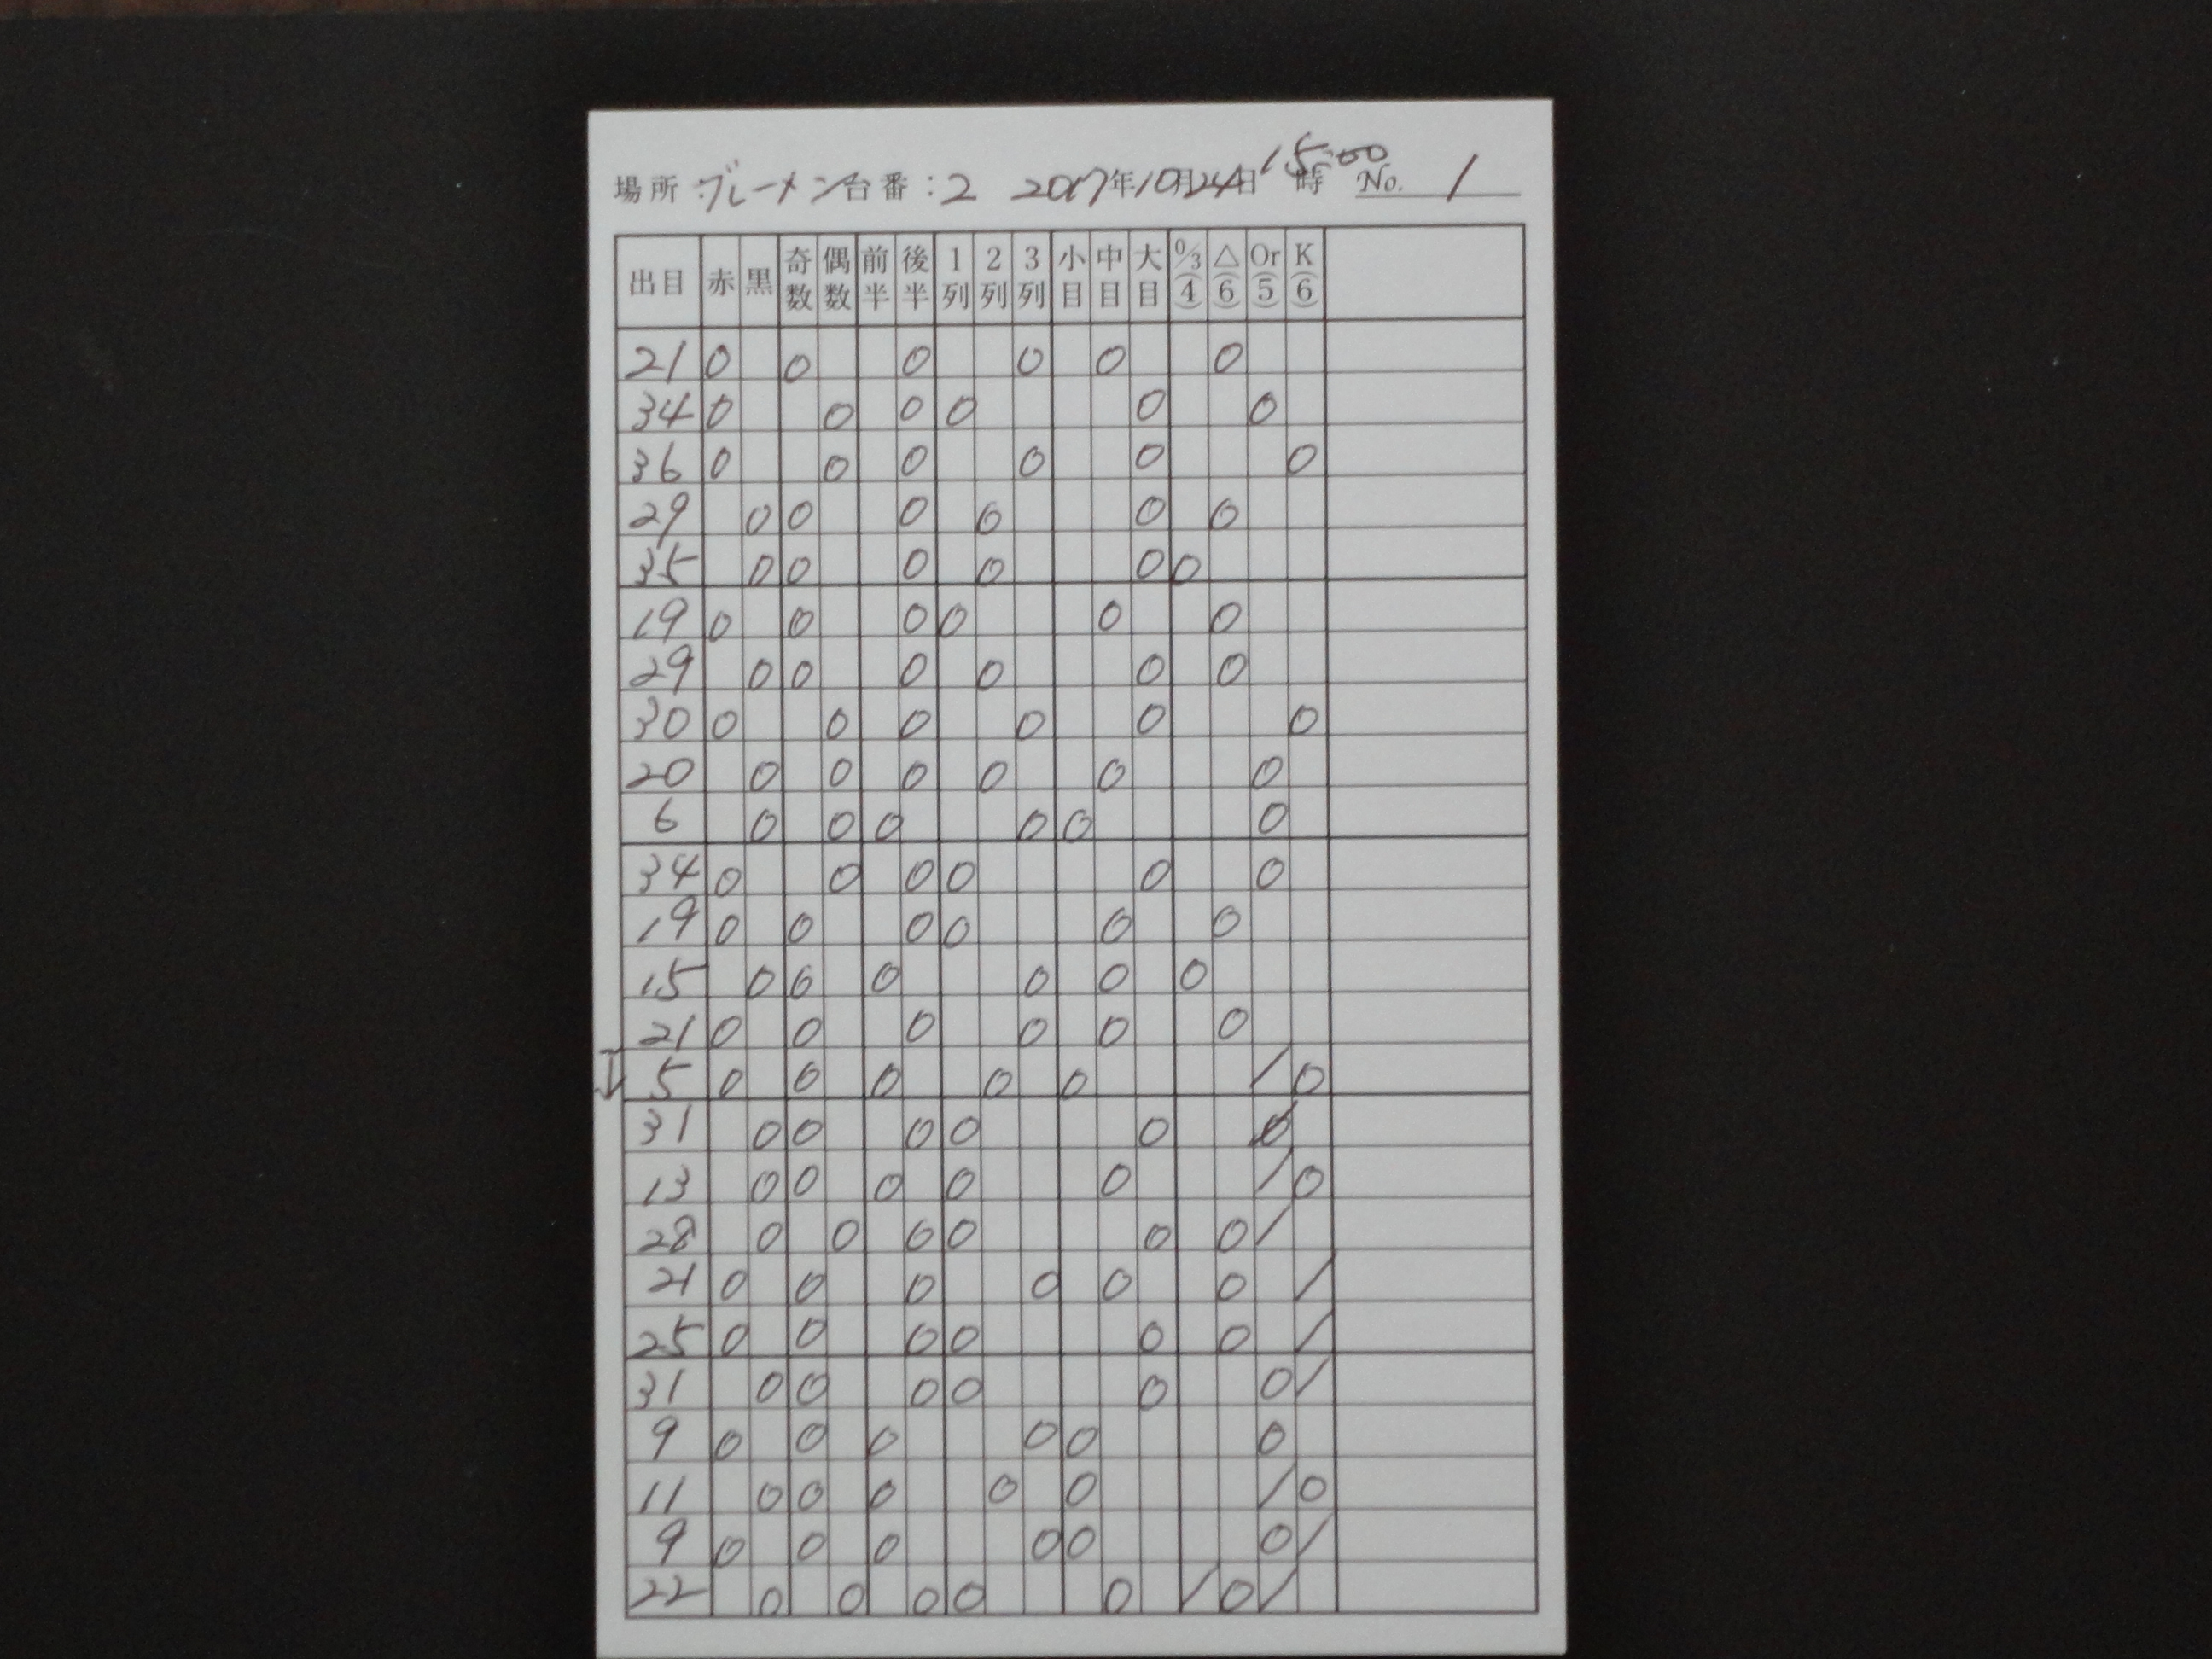 場所:ブレーメン 台番:2 2017年10月24日 15:00時 No. 1
出目 赤 黒 奇数 偶数 前半 後半 1列 2列 3列 小目 中目 大目 0/3(4) △(6) Or(5) K(6)
21 0 0 0 0 0 0
34 0 0 0 0 0 0
36 0 0 0 0 0 0
29 0 0 0 0 0 0
35 0 0 0 0 0 0
19 0 0 0 0 0 0
29 0 0 0 0 0 0
30 0 0 0 0 0 0
20 0 0 0 0 0 0
6 0 0 0 0 0 0
34 0 0 0 0 0 0
19 0 0 0 0 0 0
15 0 0 0 0 0 0
21 0 0 0 0 0 0
5 0 0 0 0 0 / 0
31 0 0 0 0 0 0 /
13 0 0 0 0 0 / 0
28 0 0 0 0 0 0 /
21 0 0 0 0 0 0 /
25 0 0 0 0 0 0 /
31 0 0 0 0 0 0 /
9 0 0 0 0 0 0
11 0 0 0 0 0 / 0
9 0 0 0 0 0 0 /
22 0 0 0 0 0 / 0 /